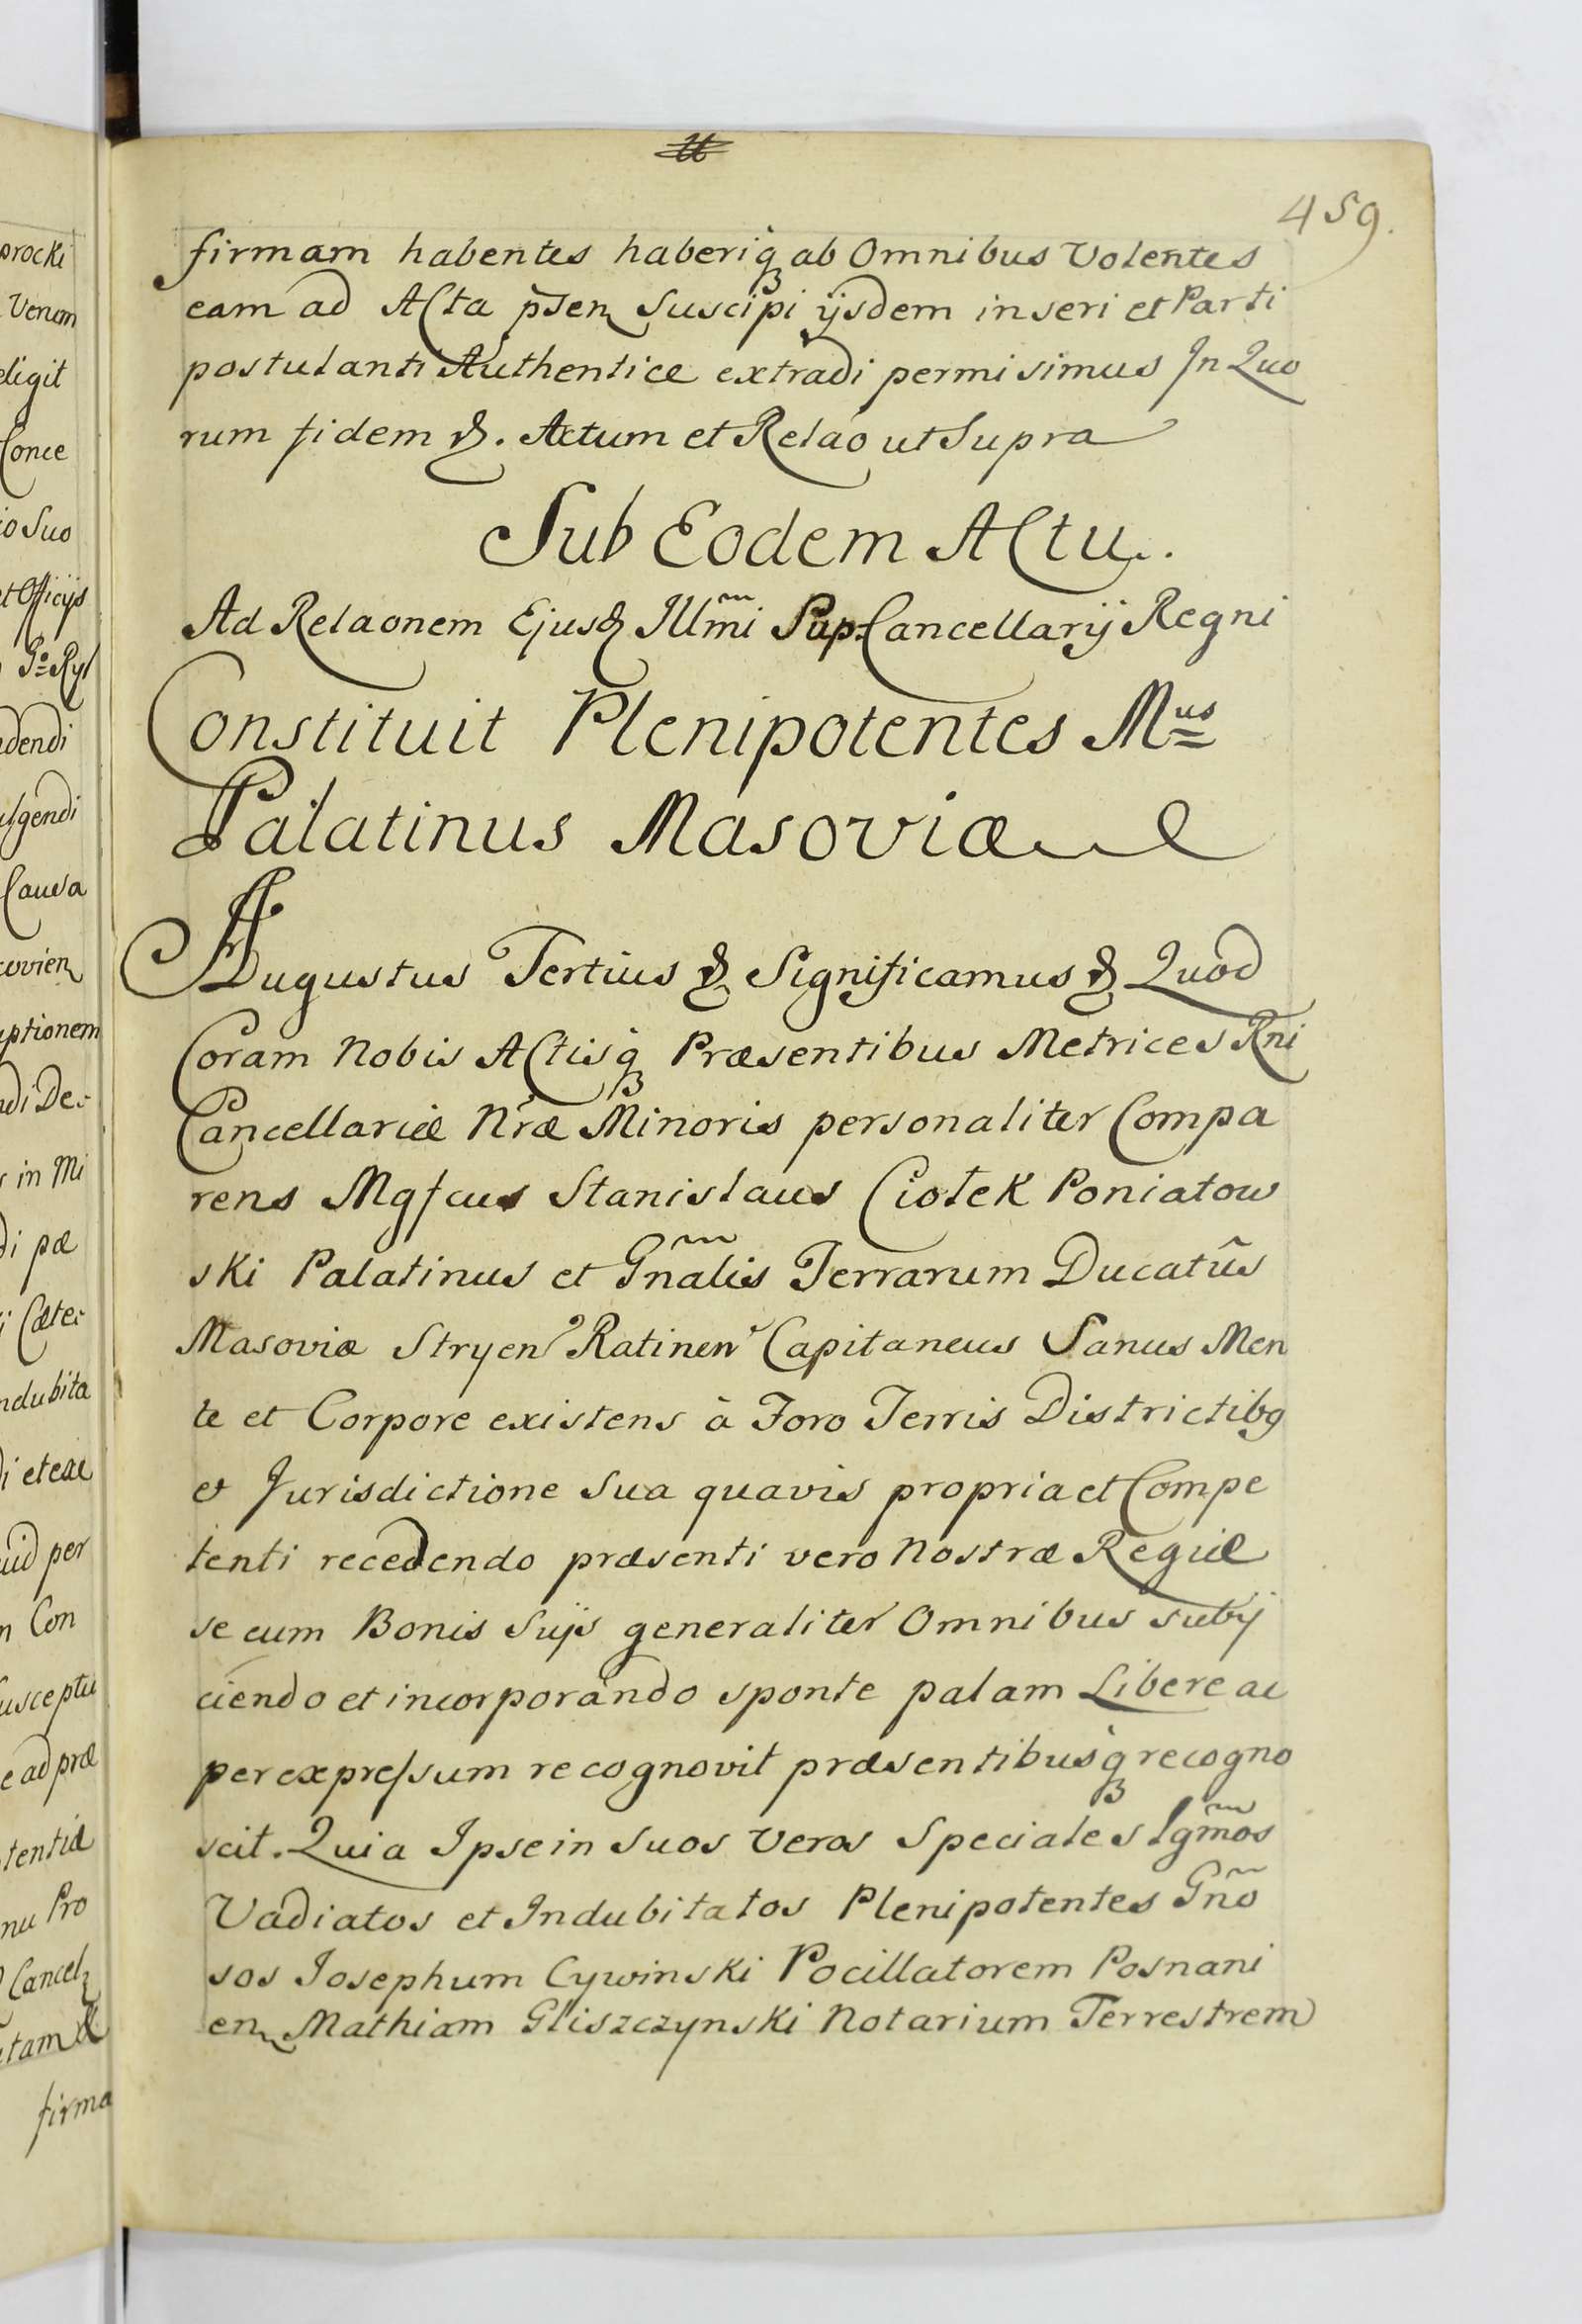 459.
firmam habentes haberiq; ab Omnibus Volentes
eam ad Acta p̃sen Suscipi ijsdem inseri et Parti
postulanti Authentice extradi permisimus In Quo
rum fidem &. Actum et Relao ut Supra
Sub Eodem Actu.
Ad Relaonem Ejusd Illm̃i Pro-Cancellarij Regni
Constituit Plenipotentes Mus
Palatinus Masoviæ
Augustus Tertius & Significamus & Quod
Coram Nobis Actisq; Præsentibus Metrices Rni
Cancellariæ Nræ Minoris personaliter Compa
rens Mgfcus Stanislaus Ciołek Poniatow
ski Palatinus et Gñalis Terrarum Ducatûs
Masoviæ Stryen Ratinen Capitaneus Sanus Men
te et Corpore existens à Foro Terris Districtibg
et Jurisdictione Sua quavis propria et Compe
tenti recedendo præsenti vero Nostræ Regiæ
se cum Bonis Suijs generaliter Omnibus subij
ciendo et incorporando sponte palam Libere ac
per expressum recognovit præsentibusq; recogno
scit. Quia Ipse in Suos Veros Speciales Lgm̃os
Vadiatos et Indubitatos Plenipotentes Gño
sos Josephum Cywinski Pocillatorem Posnani
en Mathiam Gliszczynski Notarium Terrestrem
procki
Venum
eligit
Conce
io Suo
et Officijs
dendi
ulgendi
Causa
covien
ptionem
di De-
in Mi
di pæ
Cæte-
ndubita
di et eæ
uid per
n Con
usceptu
e ad præ
tentiæ
nu Pro
Cancel
tam &
firma